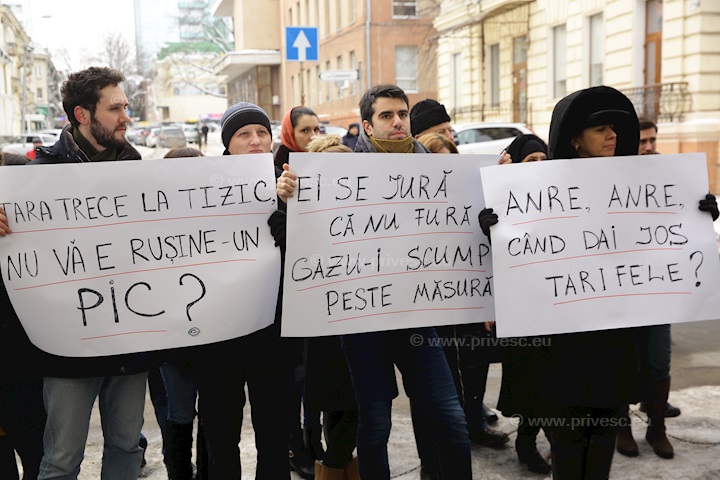 ȚARA TRECE LA TIZIC,
NU VĂ E RUȘINE-UN
PIC?
EI SE JURĂ
CĂ NU FURĂ
GAZU-I SCUMP
PESTE MĂSURĂ
ANRE, ANRE,
CÂND DAI JOS
TARIFELE?
© www.privesc.eu
© www.privesc.eu
© www.privesc.eu
© www.privesc.eu